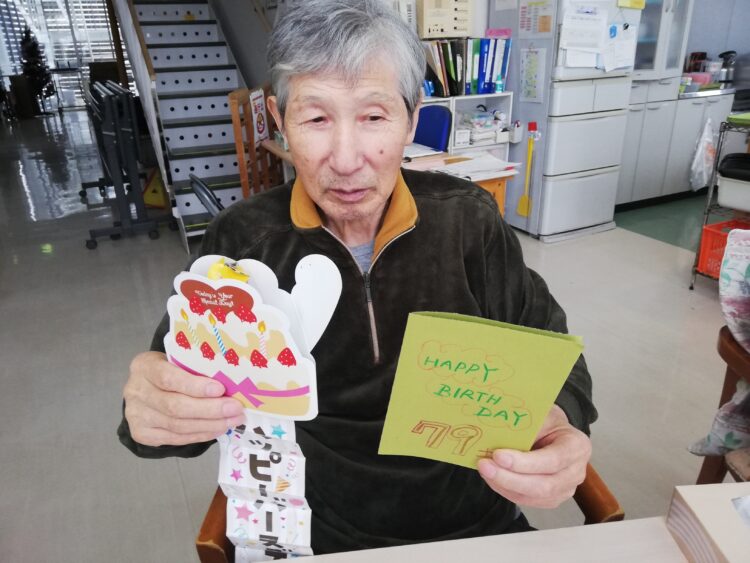 Today's Your
Special Day!
ッピーバースデ
HAPPY
BIRTH
DAY
79